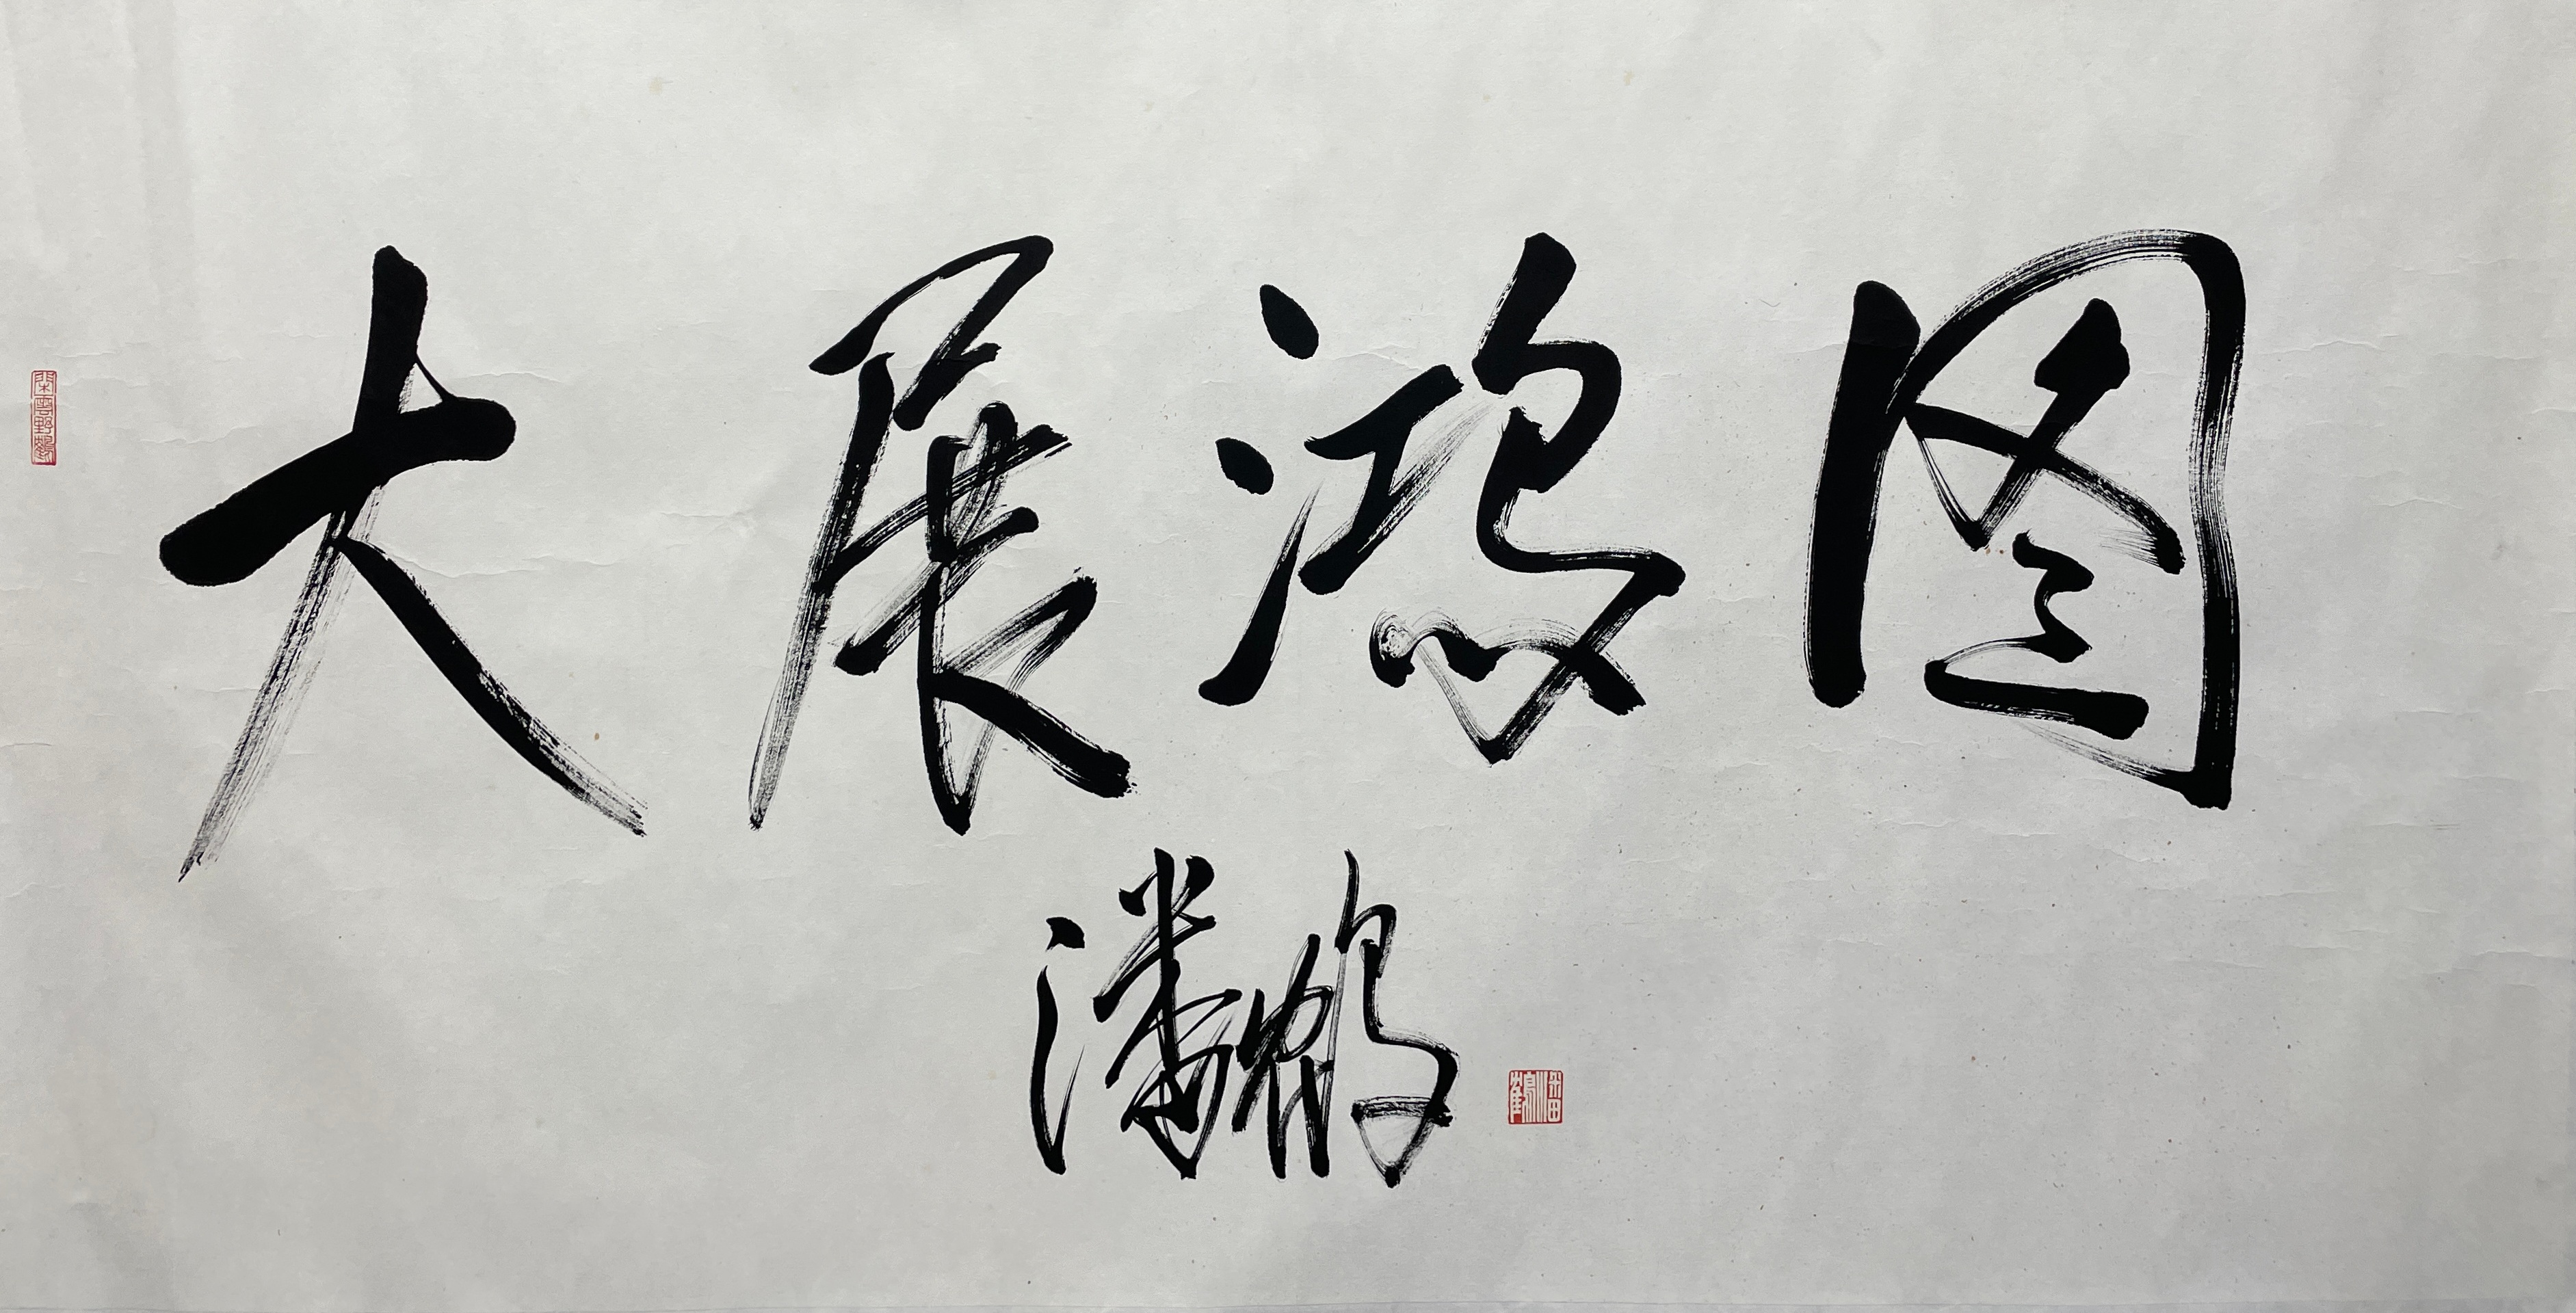 大展鸿图
潘鹤